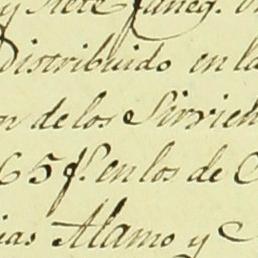 y siete faneg.
Distribuido en la
de los Sirvien
65 f.s en los de
ias Alamo y